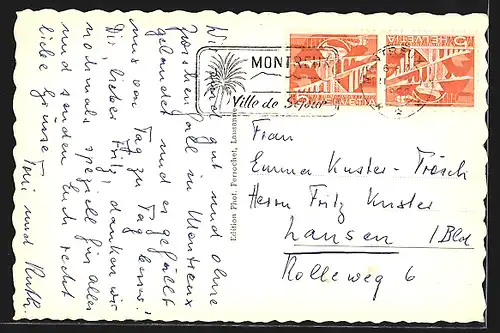 Wir sind gut und ohne
Zwischenfall in Montreux
gelandet und es gefällt
uns von Tag zu Tag besser.
Dir, lieber Fritz, danken wir
nochmals speziell für alles
und senden Euch recht
liebe Grüsse
Toni und Ruth.
Edition Phot. Perrochet, Lausanne
MONTREUX
Ville de Séjour
HELVETIA
HELVETIA
10
10
Frau
Emma Kuster-Trösch
Herrn Fritz Kuster
Lausen /Bld
Rolleweg 6